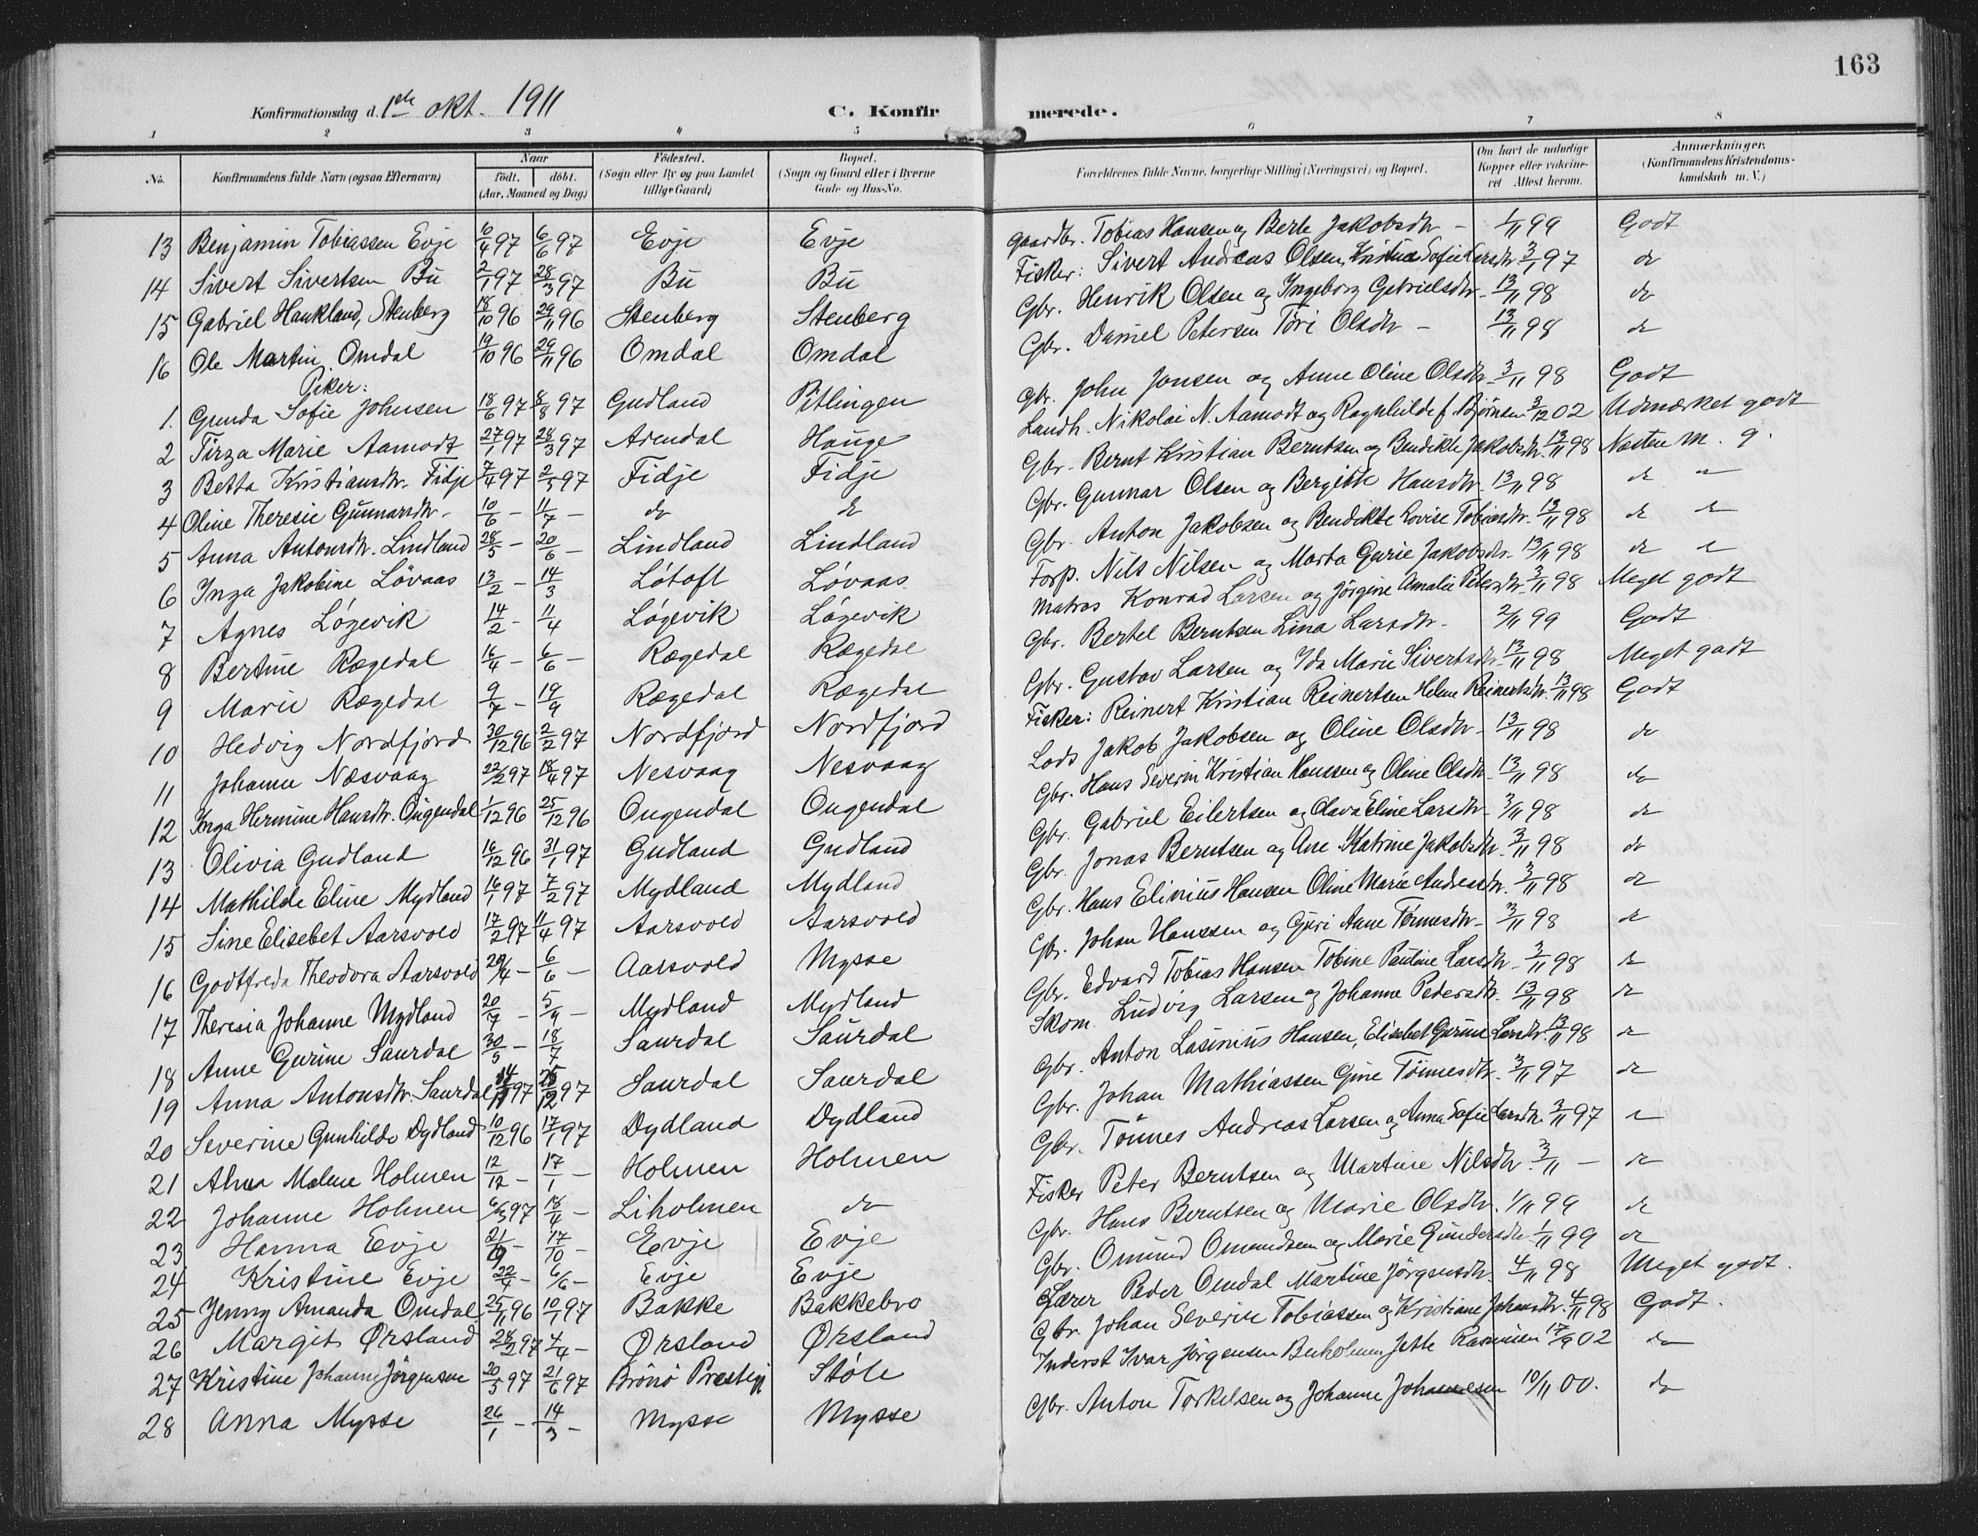 163
Konfirmationsdag d. 1ste okt. 1911 C. Konfirmerede.
1 2 3 4 5 6 7 8
No. Konfirmandens fulde Navn (ogsaa Efternavn) Naar født. døbt. (Aar, Maaned og Dag) Fødested. (Sogn eller By og paa Landet tillige Gaard) Bopæl. (Sogn og Gaard eller i Byerne Gade og Hus-No. Forældrenes fulde Navne, borgerlige Stilling (Næringsvei) og Bopæl. Om havt de naturlige Kopper eller vakcineret Attest herom. Anmærkninger. (Konfirmandens Kristendomskundskab m. V.)
13 Benjamin Tobiassen Evje 6/4 97 6/6 97 Evje Evje Gaardbr. Tobias Hansen og Berte Jakobsdtr - 1/11 99 Godt
14 Sivert Sivertsen Bu 2/1 97 28/3 97 Bu Bu Fisker: Sivert Andreas Olsen, Kristine Sofie Larsdtr 3/11 97 do
15 Gabriel Haukland, Stenberg 18/10 96 29/11 96 Stenberg Stenberg Gbr. Henrik Olsen og Ingeborg Gabrielsdtr. 13/11 98 do
16 Ole Martin Omdal 19/10 96 29/11 96 Omdal Omdal Gbr. Daniel Petersen Tori Olsdtr - 13/11 98 do
Piker:
1. Gunda Sofie Johnsen 18/6 97 8/8 97 Gudland Pitlingen Gbr. John Jonsen og Anne Oline Olsdtr. 3/11 98 Godt
2 Tirza Marie Aamodt 27/1 97 28/3 97 Arendal Hauge Landh. Nikolai N. Aamodt og Ragnhilde f. Bjørnsen 3/12 02 Udmærket godt
3 Betta Kristiansdtr. Fidje 7/4 97 2/5 97 Fidje Fidje Gbr. Bernt Kristian Berntsen og Bendikte Jakobsdtr. 13/11 98 Næsten m. g.
4 Oline Theresie Gunnarsdtr. 10/6 - 11/7 - do do Gbr. Gunnar Olsen og Bergitte Hansdtr. 13/11 98 do "
5 Anna Antonsdtr. Lindland 28/5 - 20/6 - Lindland Lindland Gbr. Anton Jakobsen og Bendikte Lovise Tobiasdtr. 13/11 98 do
6 Inga Jakobine Løvaas 13/2 - 14/3 Løtoft Løvaas Forp. Nils Nilsen og Marta Gurie Jakobsdtr. 13/11 98 do
7 Agnes Løgevik 14/2 - 11/4 Løgevik Løgevik Matros Konrad Larsen og Jørgine Amalie Petersdtr. 3/11 98 Meget godt
8 Bertine Rægedal 16/4 - 6/6 - Rægedal Rægedal Gbr. Bertel Berntsen Lina Larsdtr. 2/11 99 Godt
9 Marie Rægedal 9/7 - 19/9 Rægedal Rægedal Gbr. Gustav Larsen og Ida Marie Sivertsdtr. 13/11 98 Meget godt
10 Hedvig Nordfjord 30/12 96 2/2 97 Nordfjord Nordfjord Fisker: Reinert Kristian Reinertsen Helene Reinertsdtr. 13/11 98 Godt
11 Johanne Næsvaag 22/2 97 18/4 97 Nesvaag Nesvaag Lods Jakob Jakobsen og Oline Olsdtr. 13/11 98 do
12 Inga Hermine Hansdtr. Ongendal 1/12 96 25/12 96 Ongendal Ongendal Gbr. Hans Severin Kristian Hanssen og Oline Olsdtr. 13/11 98 do
13 Olivia Gudland 16/12 96 31/1 97 Gudland Gudland Gbr. Gabriel Eilertsen og Olava Eline Larsdtr. 3/11 98 do
14 Mathilde Eline Mydland 16/1 97 7/2 97 Mydland Mydland Gbr. Jonas Berntsen og Ane Katrine Jakobsdtr. 3/11 98 do
15 Sine Elisebet Aarsvold 17/2 97 11/4 97 Aarsvold Aarsvold Gbr. Hans Elinius Hansen Oline Marie Andreasdtr. 3/11 98 do
16 Godtfreda Theodora Aarsvold 29/4 - 6/6 - Aarsvold Mysse Gbr. Johan Hanssen og Guri Anne Tønnesdtr. 3/11 98 do
17 Theresia Johanne Mydland 20/7 - 5/9 - Mydland Mydland Gbr. Edvard Tobias Hansen Tobine Pauline Larsdtr. 3/11 98 do
18 Anne Gurine Saurdal 30/5 - 18/7 Saurdal Saurdal Skom. Ludvig Larsen og Johanne Pedersdtr. 13/11 98 do
19 Anna Antonsdtr. Saurdal 97 97 Saurdal Saurdal Gbr. Anton Lasinius Hansen, Elisebet Gurine Larsdtr. 13/11 98 do
20 Severine Gunhilde Dydland 10/12 96 17/1 97 Dydland Dydland Gbr. Johan Mathiassen Gine Tønnesdtr. 3/11 97 do
21 Malene Holmen 12/12 - 17/1 - Holmen Holmen Gbr. Tønnes Andreas Larsen og Anna Sofie Larsdtr. 3/11 97 do
22 Johanne Holmen 6/3 97 18/4 - Liholmen do Fisker Peter Berntsen og Martine Nilsdtr. 3/11 - do
23 Hanna Evje 21/9 - 17/10 - Evje Evje Gbr. Hans Berntsen og Marie Olsdtr. 1/11 99 do
24 Kristine Evje 22/4 - 6/6 - Evje Evje Gbr. Omund Omundsen og Marie Gundersdtr. 1/11 99 do
25 Jenny Amanda Omdal 25/11 96 10/1 97 Bakke Bakkebro Lærer Peder Omdal Martine Jørgensdtr. 4/11 98 Meget godt.
26 Margit Ørsland 28/2 97 4/4 - Ørsland Ørsland Gbr. Johan Severin Tobiassen og Kristiane Johansdtr. 4/11 98 Godt.
27 Kristine Johanne Jørgensen 20/5 97 21/6 97 Brønø Prestegj Støle Inderst Ivar Jørgensen Jette Rasmussen 17/9 02 do
28 Anna Mysse 26/1 - 14/3 - Mysse Mysse Gbr. Anton Torkelsen og Johanne Johannesen 10/11 00. do